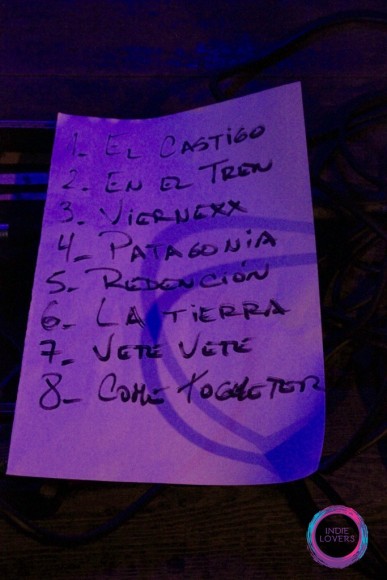 1_ EL CASTIGO
2_ EN EL TREN
3_ VIERNEXX
4_ PATAGONIA
5_ REDENCIÓN
6_ LA TIERRA
7_ VETE VETE
8_ COME TOGUETER
INDIE
LOVERS